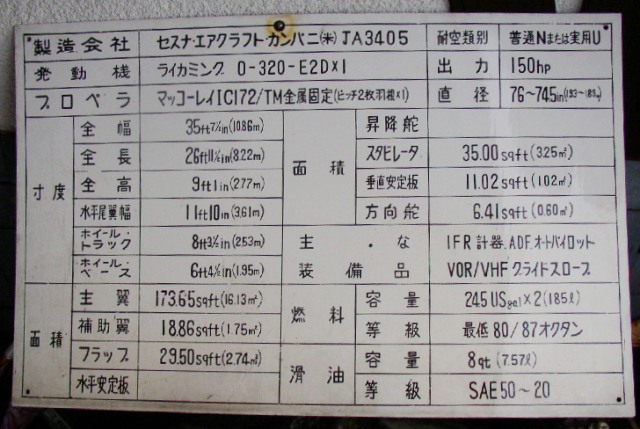 製造会社 セスナ・エアクラフト・カンパニ(米) JA3405 耐空類別 普通Nまたは実用U
発動機 ライカミング O-320-E2D×1 出力 150hp
プロペラ マッコーレイ1C172/TM金属固定(ピッチ2枚羽根×1) 直径 76~74.5in
寸度
全幅 35ft7½in(10.86m)
全長 (8.22m)
全高 9ft1in(2.77m)
水平尾翼幅 11ft10in(3.61m)
ホイール・トラック (2.53m)
ホイール・ベース (1.95m)
面積
昇降舵
スタビレータ 35.00sqft(3.25㎡)
垂直安定板 11.02sqft(1.02㎡)
方向舵 6.41sqft(0.60㎡)
主・な IFR計器.ADF.オートパイロット
装備品 VOR/VHFグライドスロープ
面積
主翼 173.65sqft(16.13㎡)
補助翼 18.86sqft(1.75㎡)
フラップ 29.50sqft(2.74㎡)
水平安定板
燃料
容量 24.5USgal×2(185ℓ)
等級 最低80/87オクタン
滑油
容量 8qt(7.57ℓ)
等級 SAE50~20